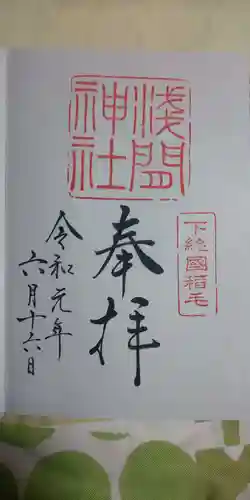 下總國稲毛
淺間
神社
奉拝
令和元年
六月十六日